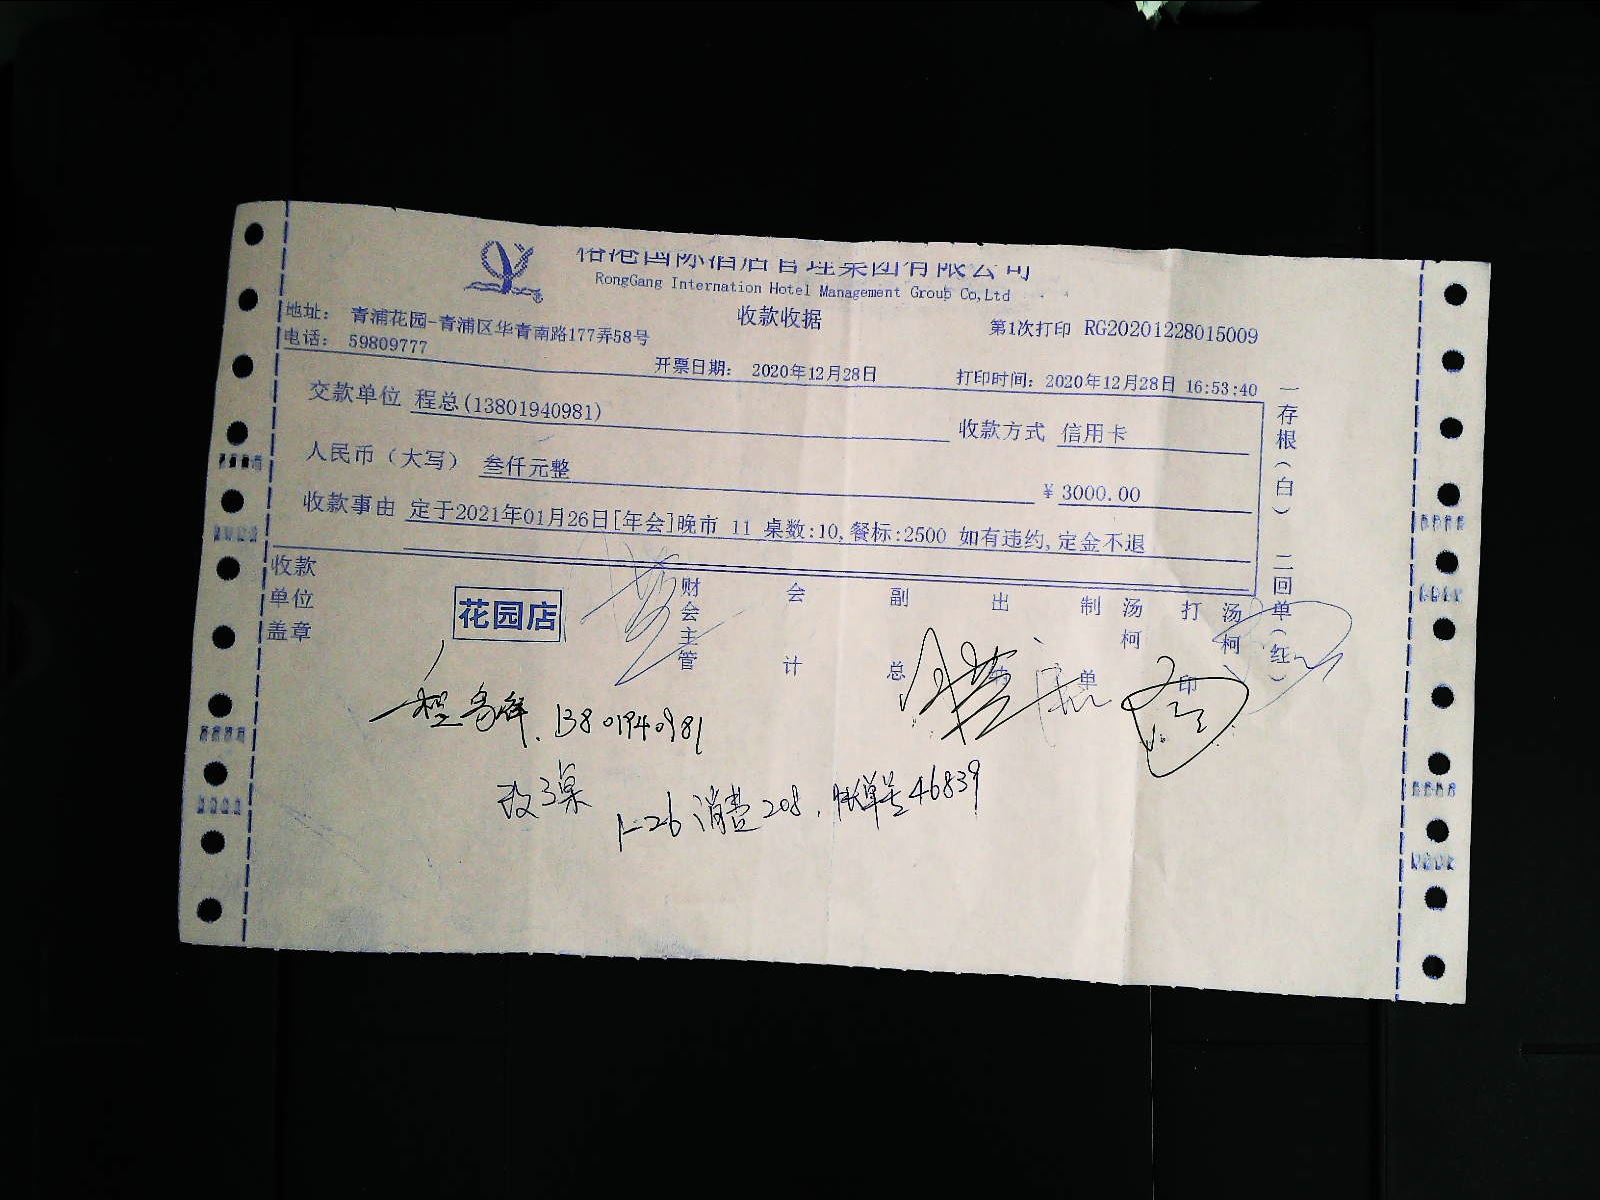 裕港国际酒店管理集团有限公司
RongGang Internation Hotel Management Group Co,Ltd
收款收据
第1次打印 RG20201228015009
地址： 青浦花园-青浦区华青南路177弄58号
电话： 59809777
开票日期： 2020年12月28日
打印时间：2020年12月28日 16:53:40
交款单位 程总(13801940981)
收款方式 信用卡
人民币（大写） 叁仟元整
¥ 3000.00
收款事由 定于2021年01月26日[年会]晚市 11 桌数:10,餐标:2500 如有违约,定金不退
一存根(白) 二回单(红)
收款单位盖章
花园店
财会主管
会计
副总
出纳
制单
汤柯
打印
汤柯
13801940981
改3桌
1-26 消费208，帐单号46839